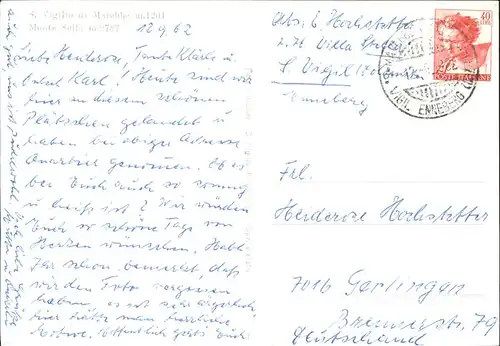 S. Vigilio di Marebbe m. 1201
Monte Sella m. 2787
18 9 62
Liebe Heiderose, Tante Klärle u.
Onkel Karl! Heute sind wir
hier in diesem schönen
Plätzchen gelandet u.
haben bei obiger Adresse
Quartier genommen. Ob es
bei Euch auch so sonnig
u. heiß ist? Wir würden
Euch so schöne Tage von
Herzen wünschen. Habt
Ihr schon bemerkt, daß
wir den Foto vergessen
haben, es ist sehr ärgerlich,
hier hätte man herrliche
Motive. Hoffentlich geht's Euch
auch gut
Abs: E. Hochstetter
z. Zt. Villa
S. Vigil
Enneberg
40
POSTE ITALIANE
VIGIL ENNEBERG
Frl.
Heiderose Hochstetter
7016 Gerlingen
Brennerstr. 79
Deutschland